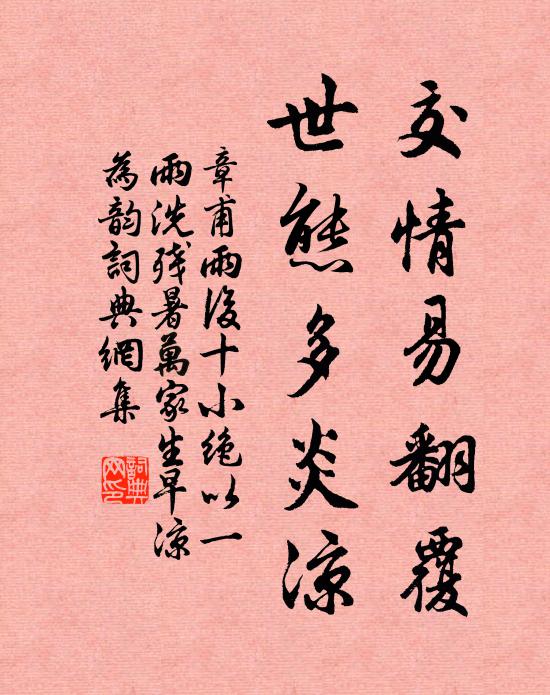 交情易翻覆
世態多炎涼
章甫雨後十小绝以一
雨洗残暑萬家生早凉
為韵詞典網集
詞典网印